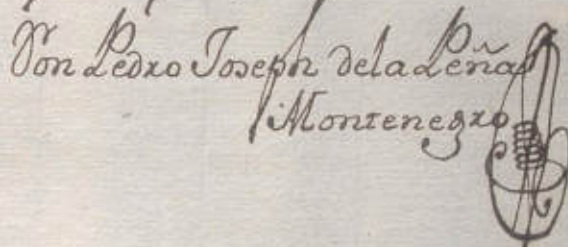 Don Pedro Joseph dela Peña
Montenegro